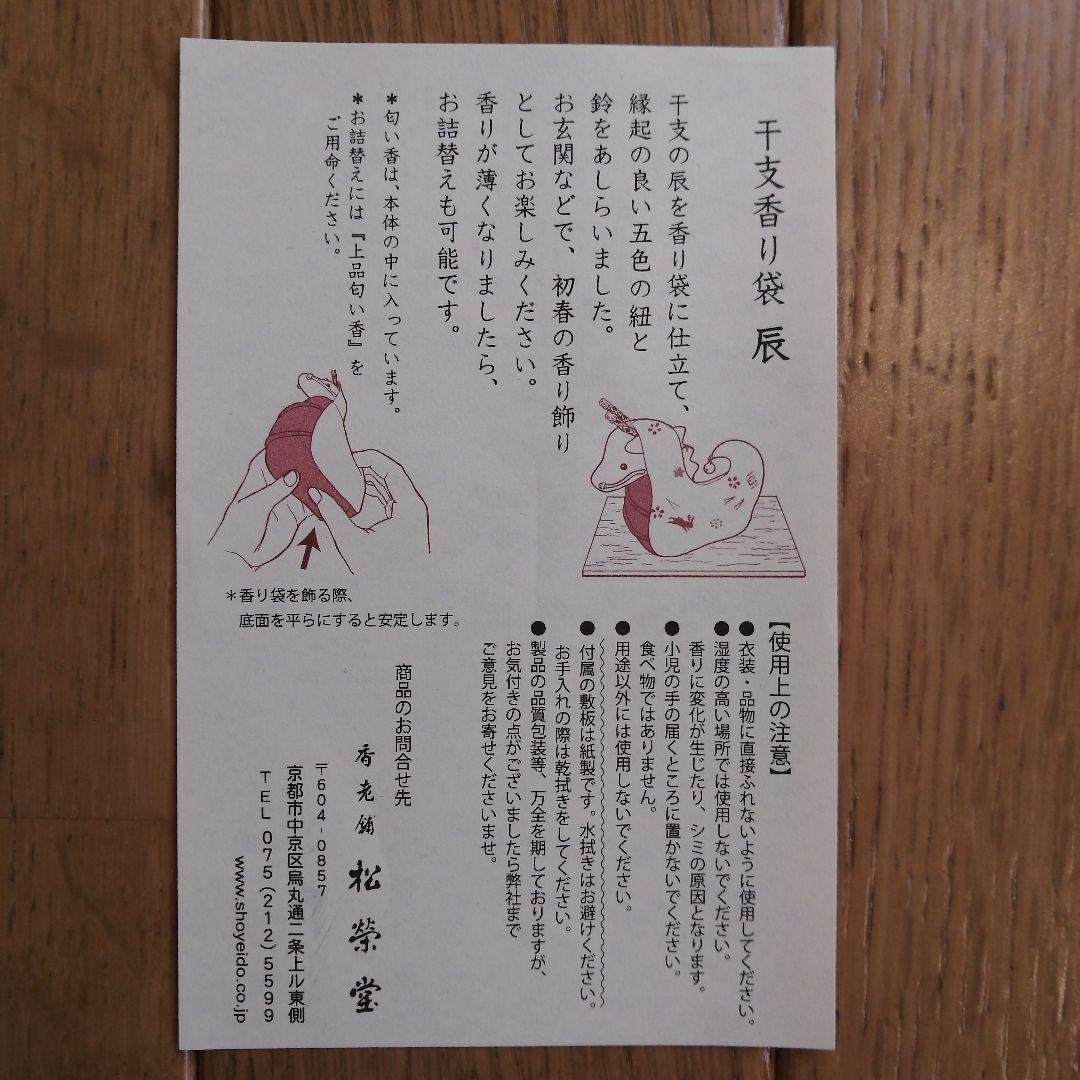 干支香り袋 辰
干支の辰を香り袋に仕立て、
縁起の良い五色の紐と
鈴をあしらいました。
お玄関などで、初春の香り飾り
としてお楽しみください。
香りが薄くなりましたら、
お詰替えも可能です。
＊匂い香は、本体の中に入っています。
＊お詰替えには『上品匂い香』を
ご用命ください。
＊香り袋を飾る際、
底面を平らにすると安定します。
【使用上の注意】
●衣装・品物に直接ふれないように使用してください。
●湿度の高い場所では使用しないでください。
香りに変化が生じたり、シミの原因となります。
●小児の手の届くところに置かないでください。
食べ物ではありません。
●用途以外には使用しないでください。
●付属の敷板は紙製です。水拭きはお避けください。
お手入れの際は乾拭きをしてください。
●製品の品質包装等、万全を期しておりますが、
お気付きの点がございましたら弊社まで
ご意見をお寄せくださいませ。
商品のお問合せ先
香老舗 松榮堂
〒604-0857
京都市中京区烏丸通二条上ル東側
TEL 075(212)5599
www.shoyeido.co.jp